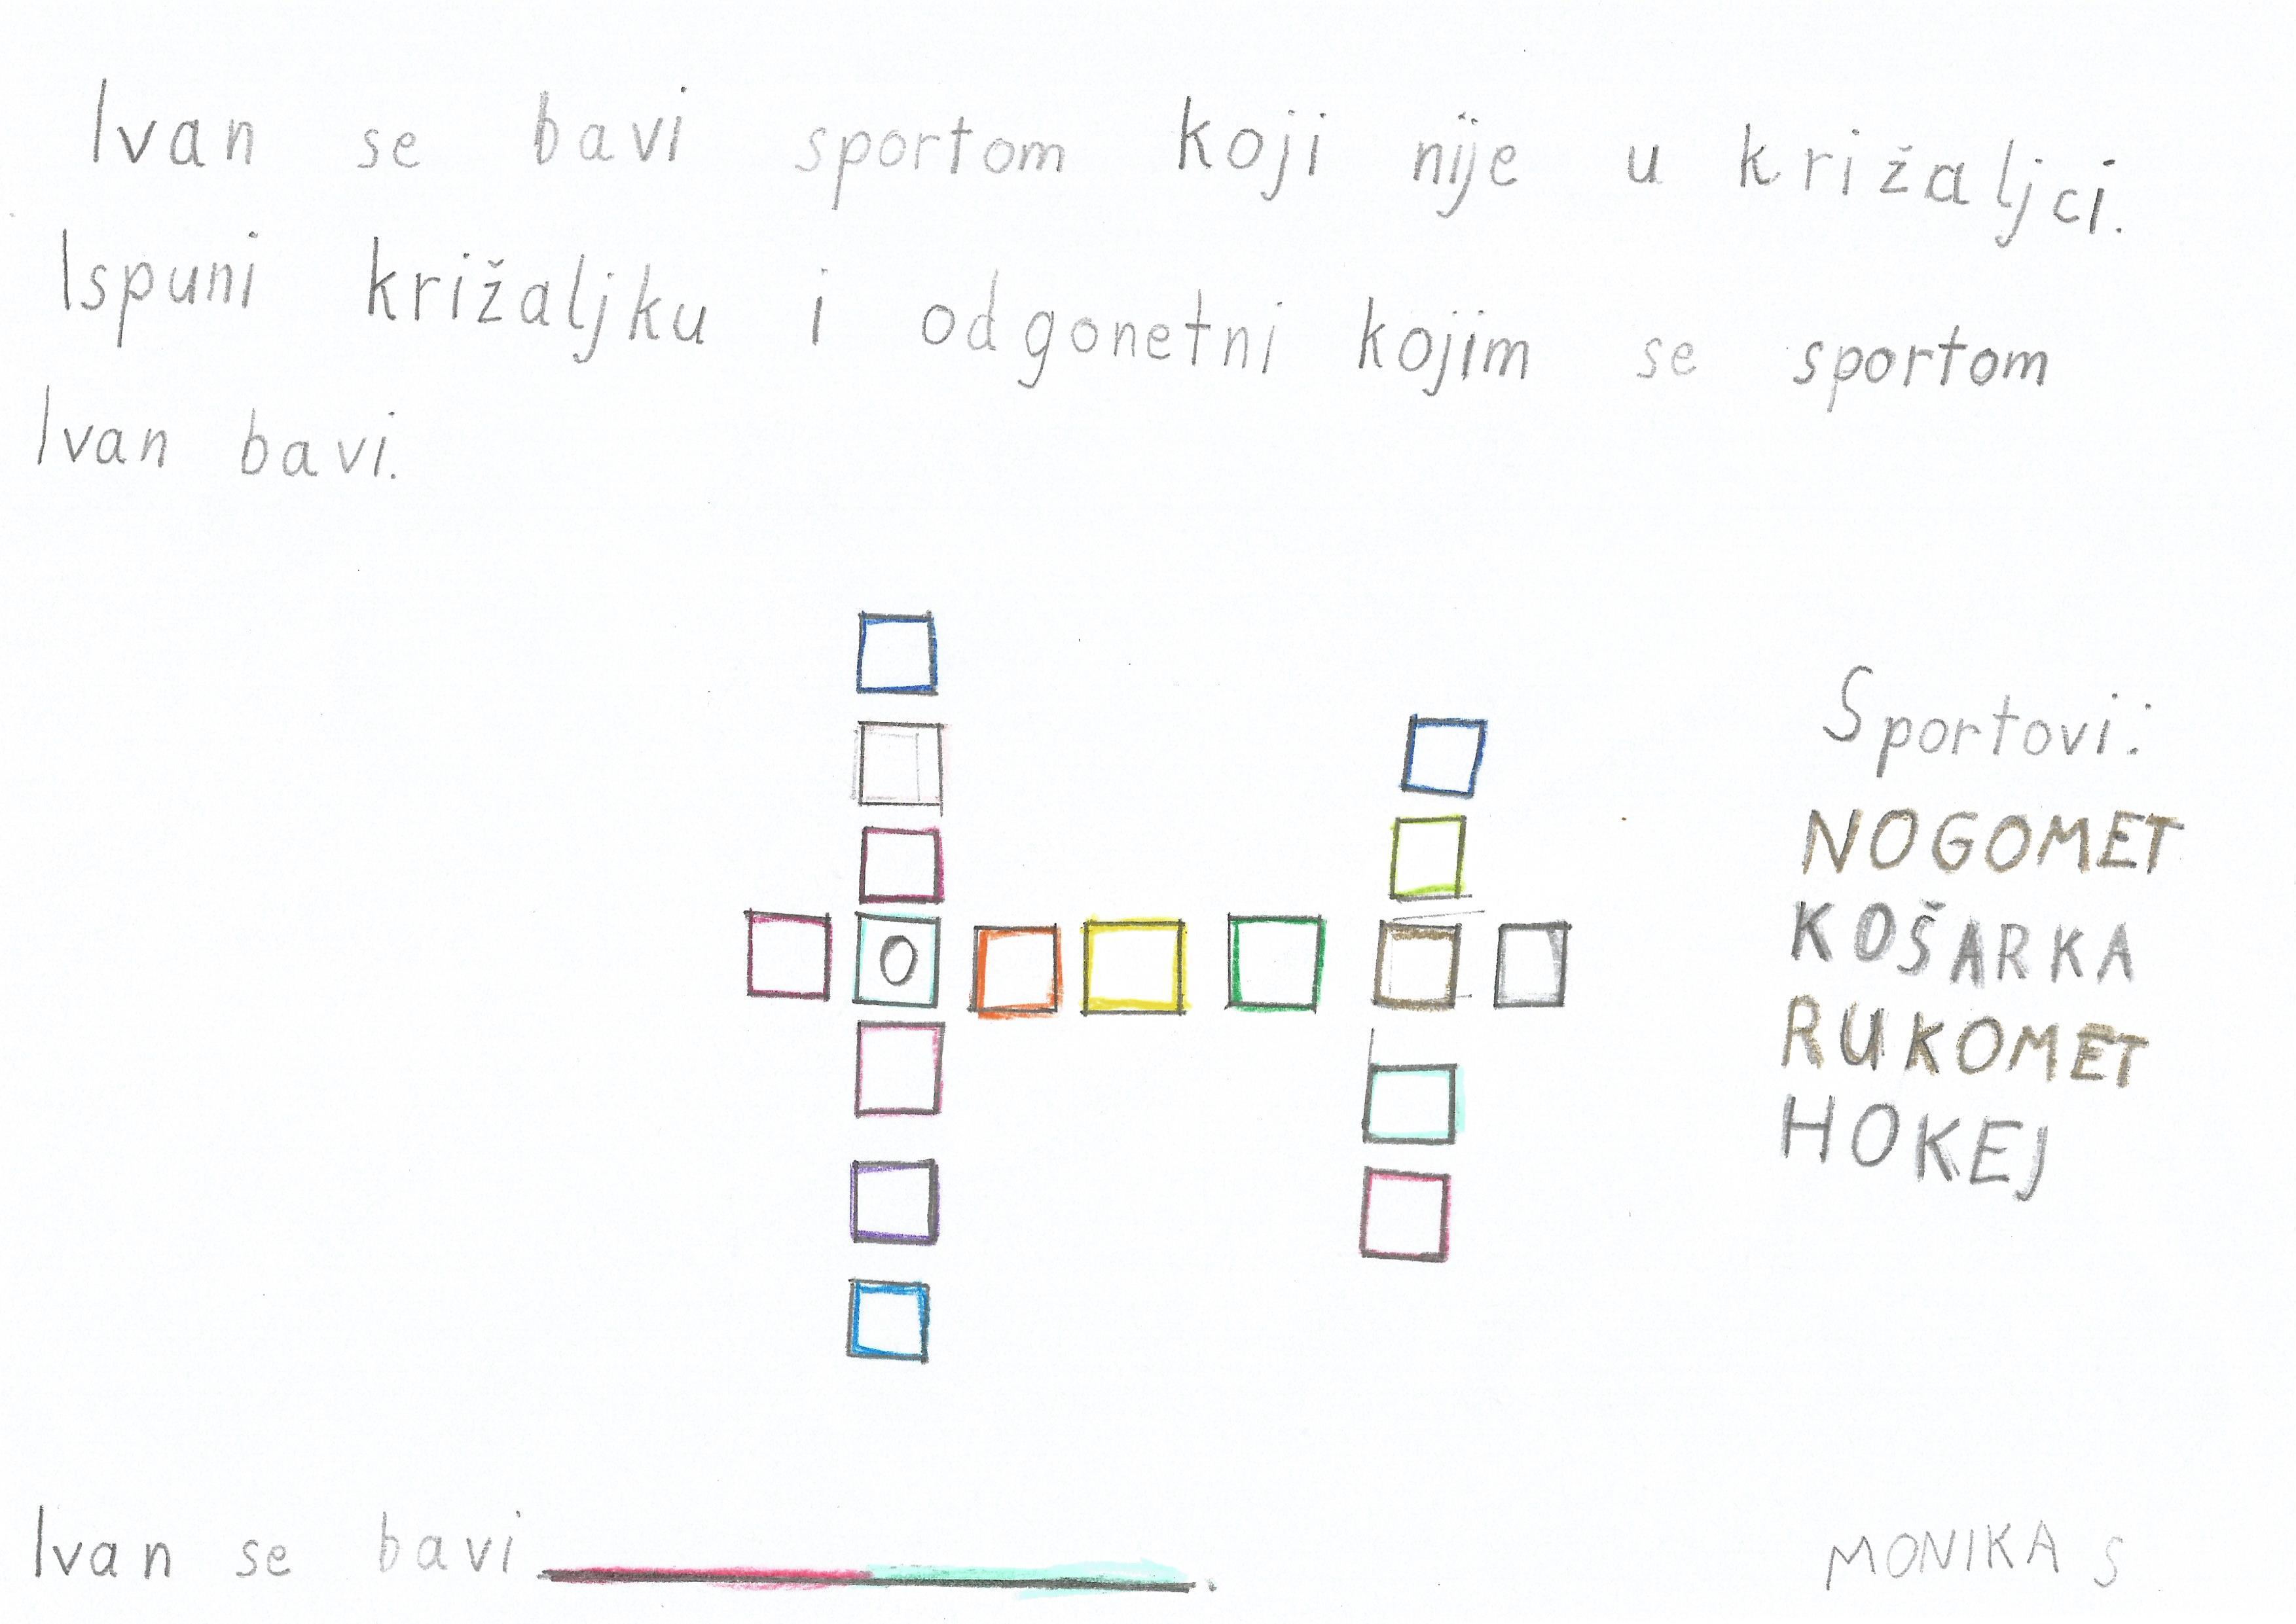 Ivan se bavi sportom koji nije u križaljci.
Ispuni križaljku i odgonetni kojim se sportom
Ivan bavi.
O
Sportovi:
NOGOMET
KOŠARKA
RUKOMET
HOKEJ
Ivan se bavi .
MONIKA S